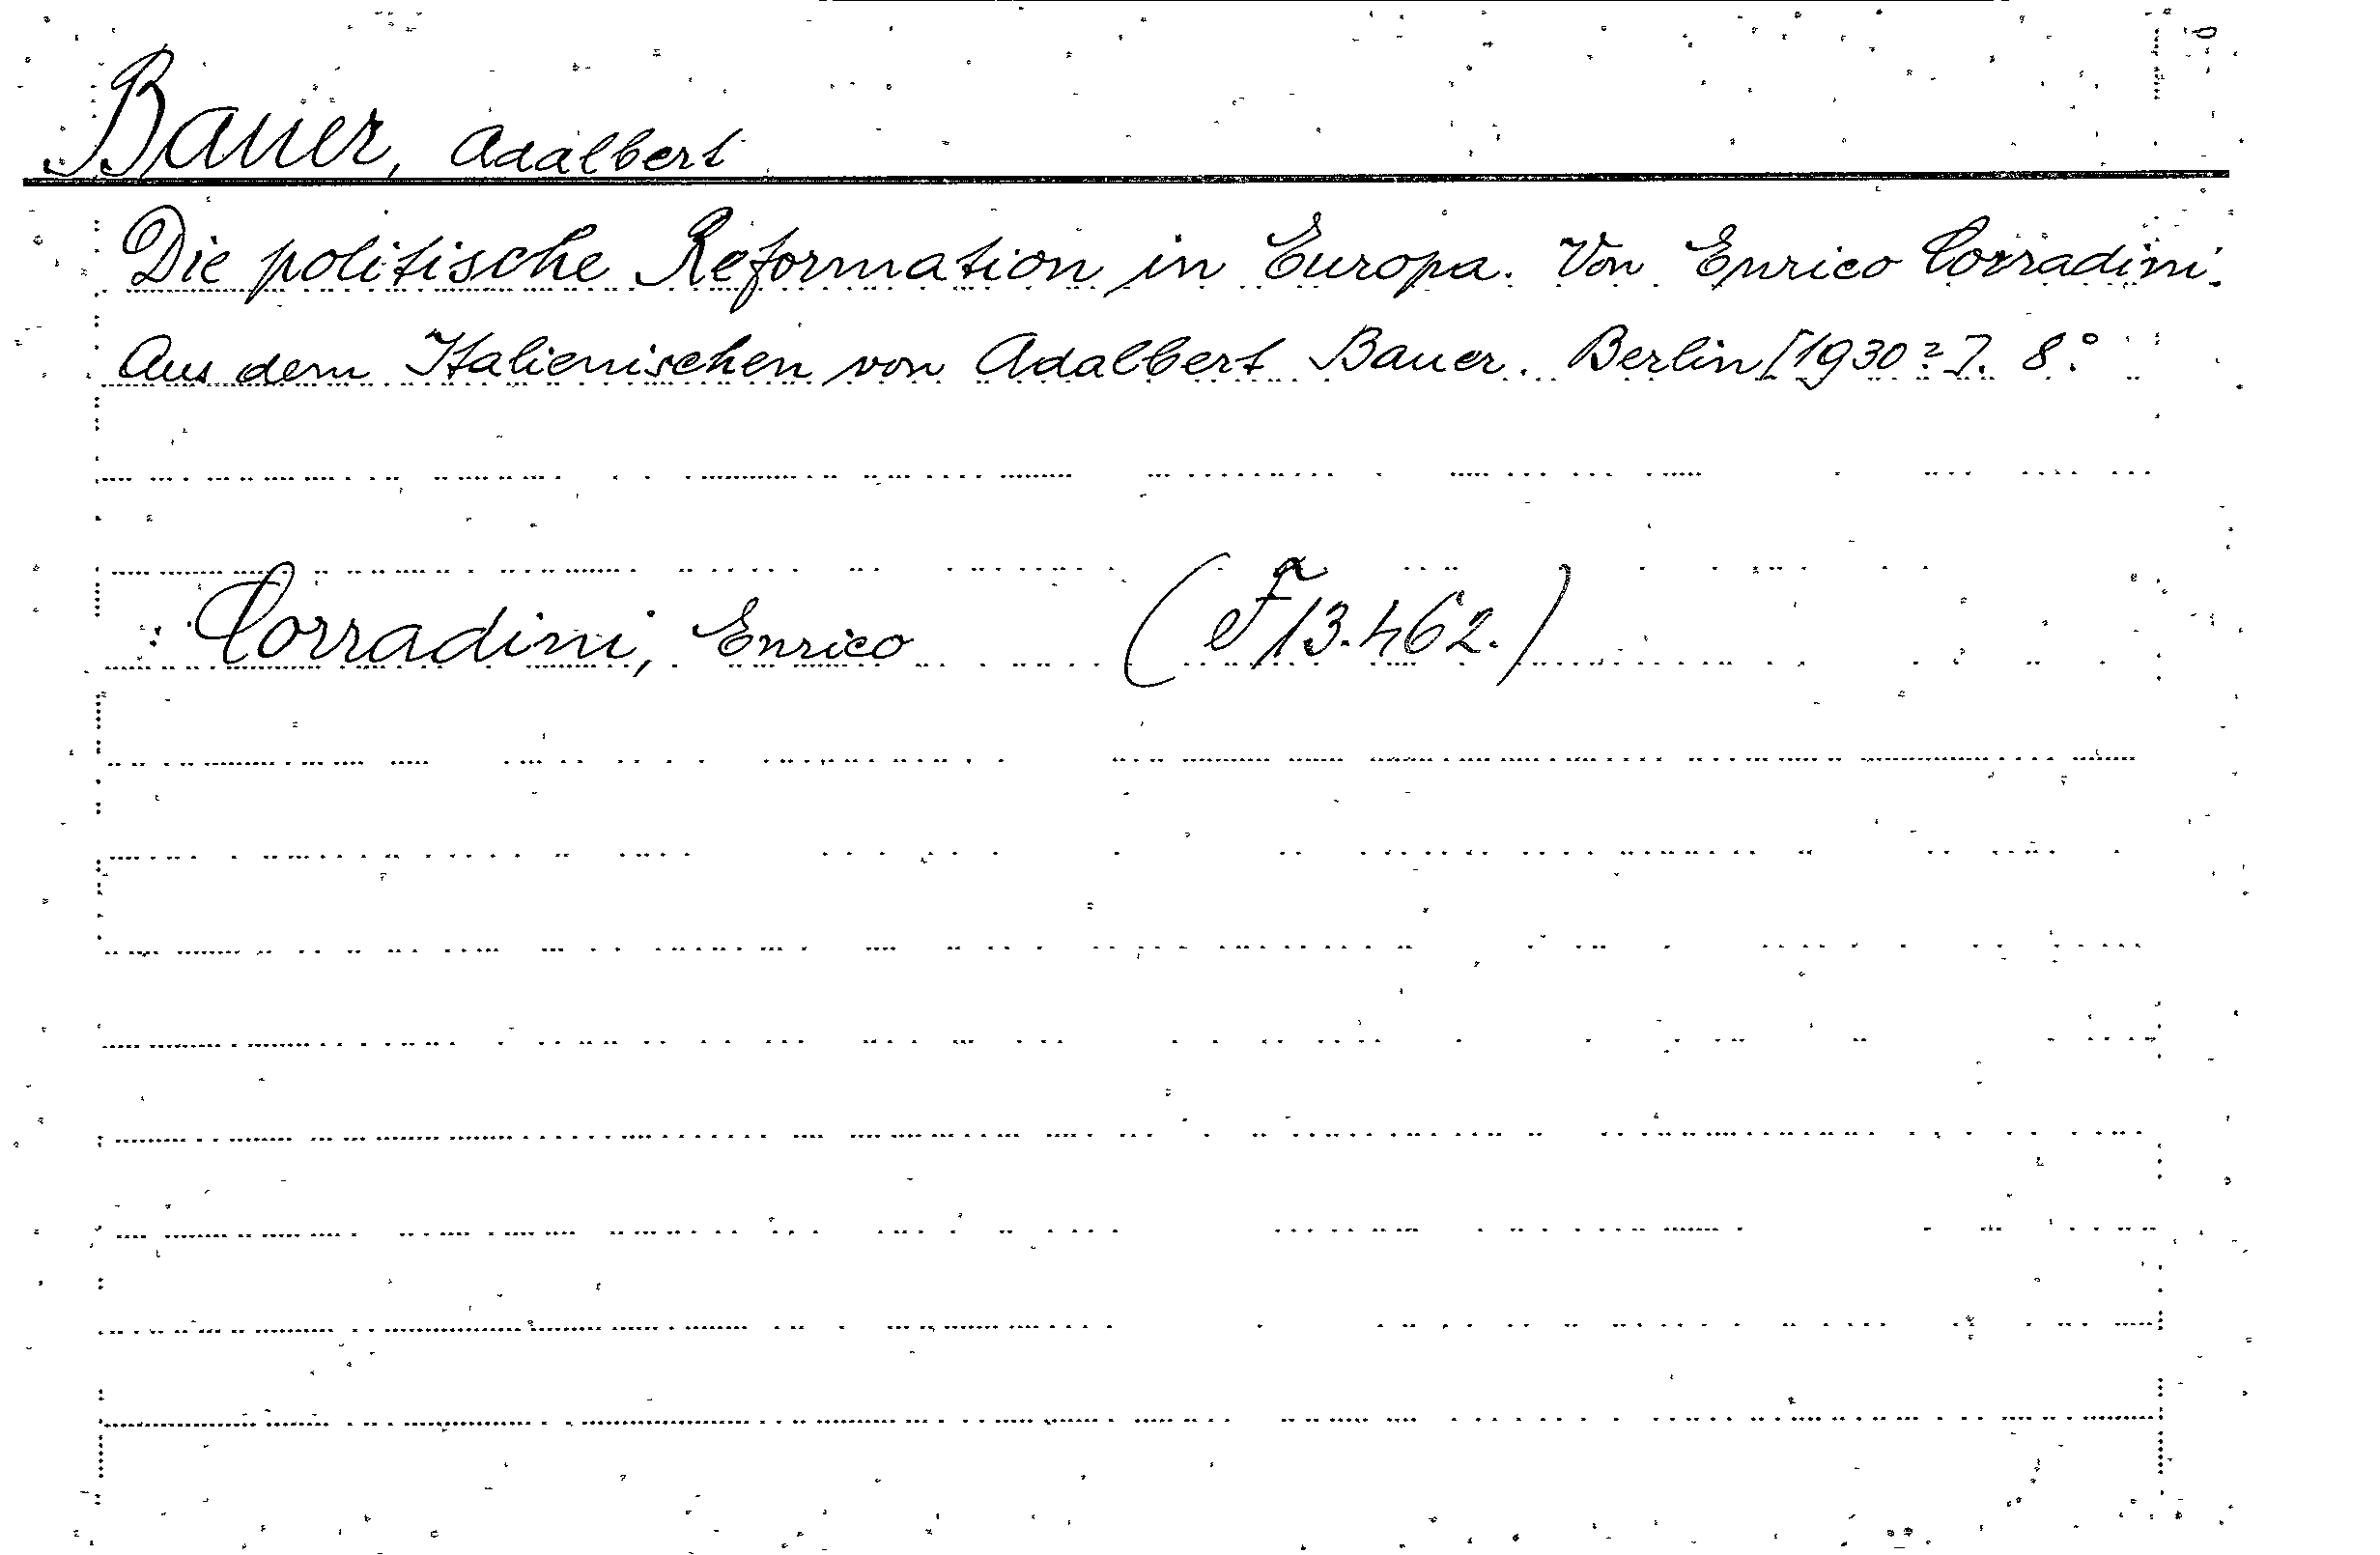 Bauer, Adalbert
Die politische Reformation in Europa. Von Enrico Corradini.
Aus dem Italienischen von Adalbert Bauer. Berlin [1930?]. 8°.
Corradini, Enrico (F 13.462.)